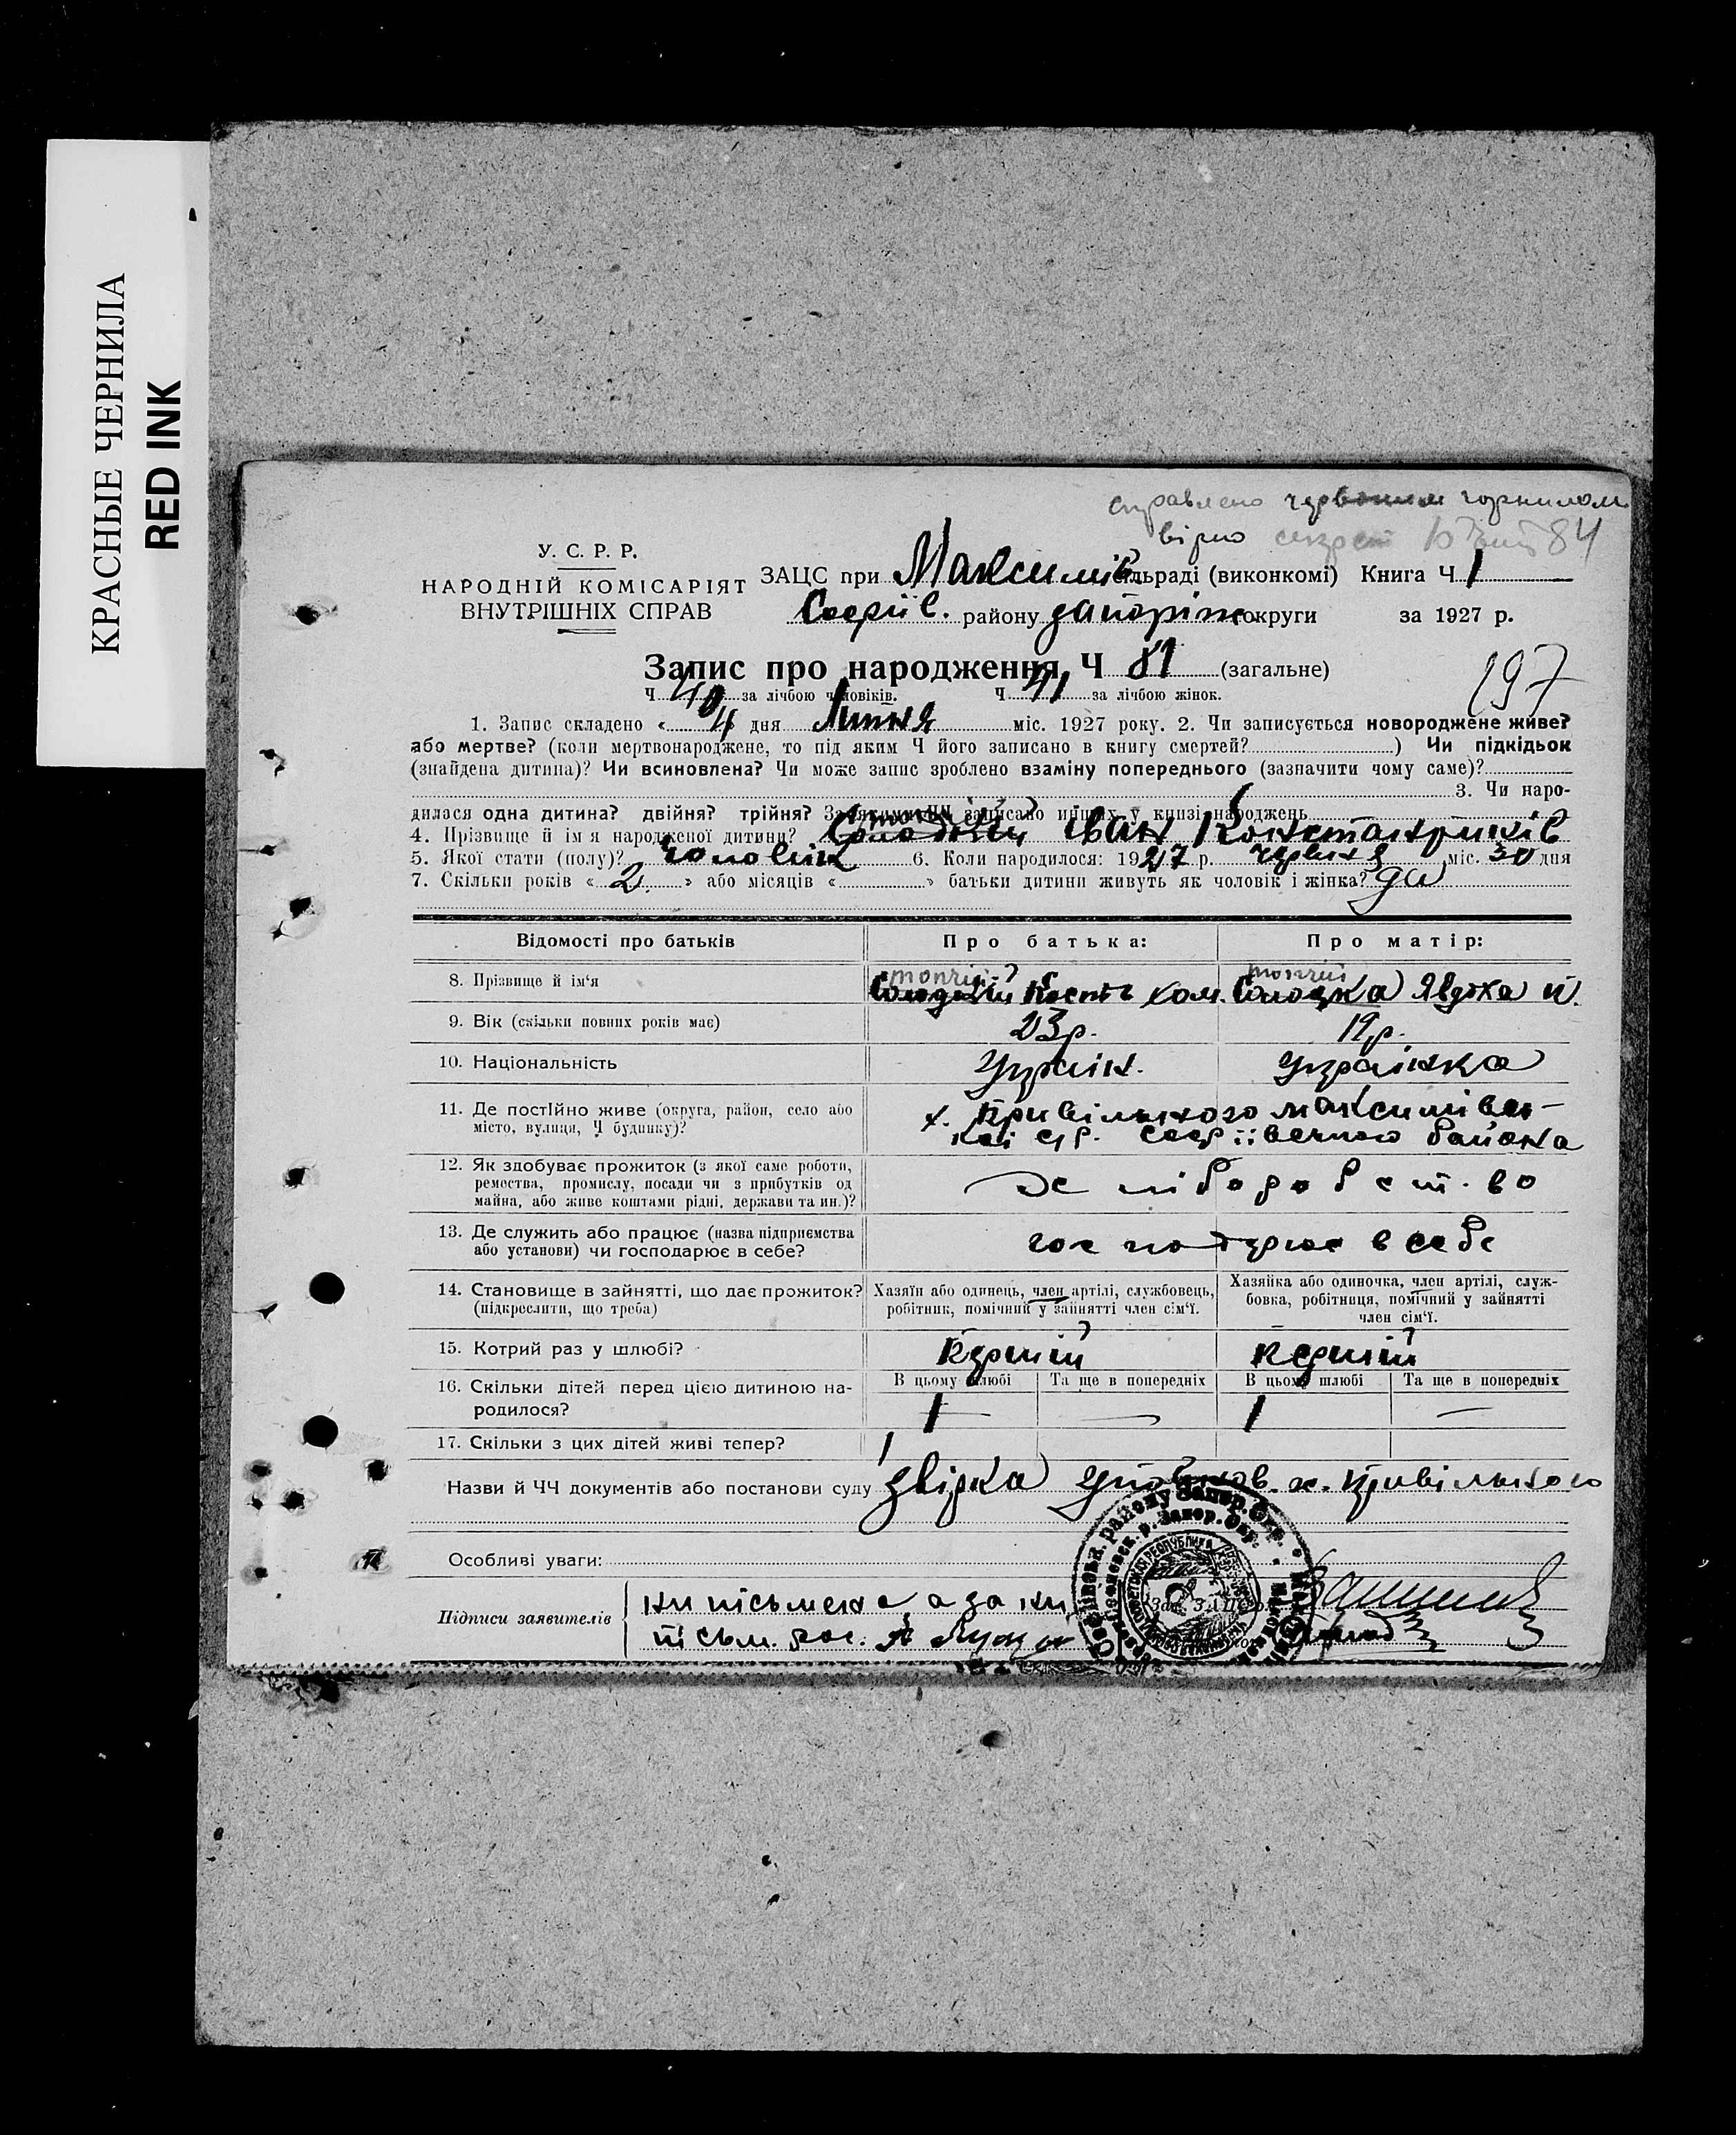 КРАСНЫЕ ЧЕРНИЛА
RED INK
справлено червоним чорнилом
вірно 84
У. С. Р. Р.
НАРОДНІЙ КОМІСАРІЯТ
ВНУТРІШНІХ СПРАВ
ЗАЦС при Максимів сільраді (виконкомі) Книга Ч 1
Софіїв. району Запоріж округи за 1927 р.
Запис про народження Ч 81 (загальне)
197
Ч 40 за лічбою чоловіків. Ч 41 за лічбою жінок.
1. Запис складено « 4 дня Липня міс. 1927 року. 2. Чи записується новороджене живе?
або мертве? (коли мертвонароджене, то під яким Ч його записано в книгу смертей? ) Чи підкідьок
(знайдена дитина)? Чи всиновлена? Чи може запис зроблено взаміну попереднього (зазначити чому саме)?
3. Чи наро-
дилася одна дитина? двійня? трійня? За якими ЧЧ записано инших у книзі народжень
4. Прізвище й ім'я народженої дитини? Іван Константинів
5. Якої стати (полу)? чоловік 6. Коли народилося: 1927 р. червня міс. 30 дня
7. Скільки років « 2 » або місяців « » батьки дитини живуть як чоловік і жінка? да
Відомості про батьків Про батька: Про матір:
8. Прізвище й ім'я Кость хом. Явдоха
9. Вік (скільки повних років має) 23р. 19р.
10. Національність Украін. Украінка
11. Де постійно живе (округа, район, село або х. Привільного максимівсь-
місто, вулиця, Ч будинку)? коі с/р. софіівського района
12. Як здобуває прожиток (з якої саме роботи,
ремества, промислу, посади чи з прибутків од
майна, або живе коштами рідні, держави та ин.)? хліборобст-во
13. Де служить або працює (назва підприємства
або установи) чи господарює в себе? в себе
14. Становище в зайнятті, що дає прожиток? Хазяїн або одинець, член артілі, службовець, Хазяйка або одиночка, член артілі, служ-
(підкреслити, що треба) робітник, помічний у зайнятті член сім'ї. бовка, робітниця, помічний у зайнятті
член сім'ї.
15. Котрий раз у шлюбі? перший перший
16. Скільки дітей перед цією дитиною на- В цьому шлюбі Та ще в попередніх В цьому шлюбі Та ще в попередніх
родилося? 1 — 1 —
17. Скільки з цих дітей живі тепер? 1
Назви й ЧЧ документів або постанови суду х. Привільного
Особливі уваги:
Підписи заявителів нипісьмена а за ни
пісьм. рос.